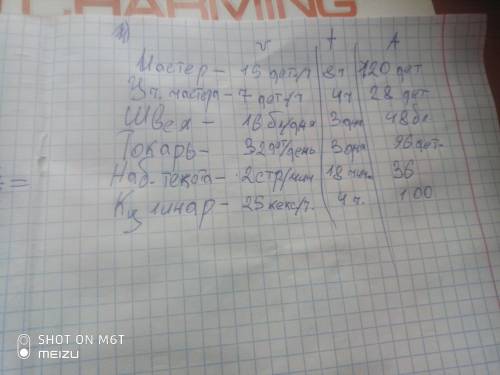 CHARMING
v t A
Мастер - 15 дет/ч 8ч 120 дет
Уч. мастера - 7 дет/ч 4ч 28 дет
Швея - 16 бл/дня 3дня 48бл
Токарь - 32дет/день 3дня 96дет.
Наб. текста - 2стр/мин 18 мин. 36
Кулинар - 25 кекс/ч. 4 ч. 100
SHOT ON M6T
meizu